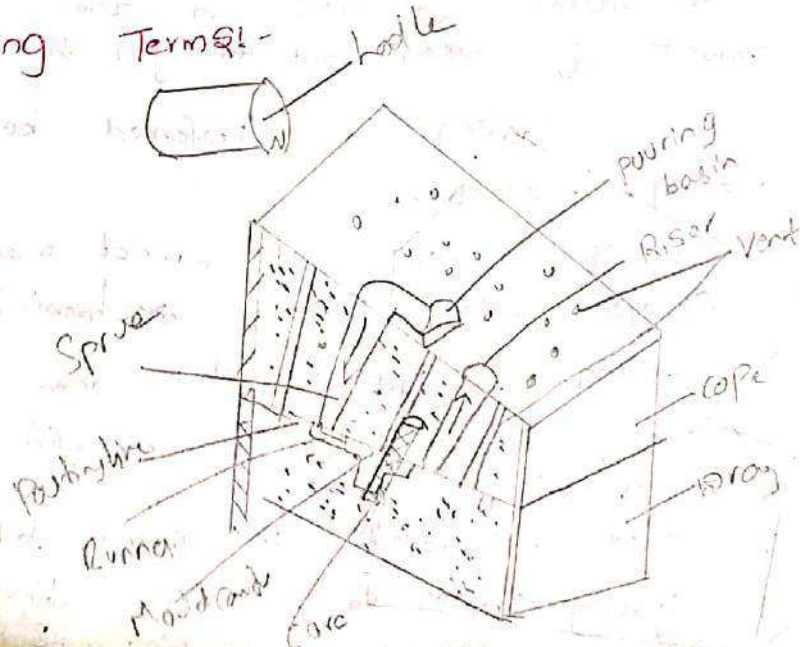 ng Terms:-
Ladle
pouring
basin
Risor
Vent
Sprue
cope
Drag
Partingline
Runner
Core